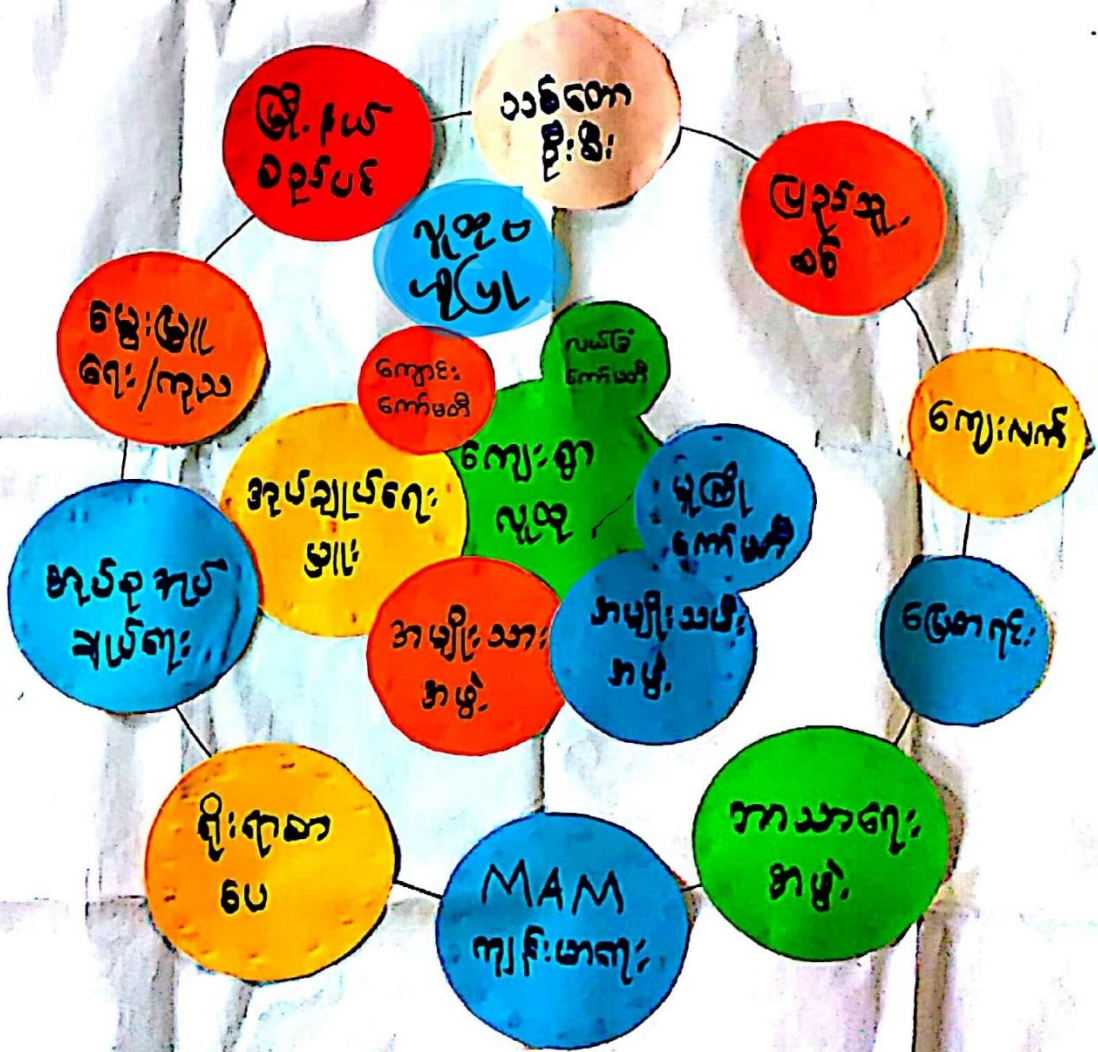 မြို့နယ်
စည်ပင်
သစ်တော
ဦးစီး
ပြည်သူ့
စစ်
လူထုဗ
ဟိုပြု
မွေးမြူ
ရေး/ကုသ
ကျောင်း
ကော်မတီ
လယ်ခြံ
ကော်မတီ
ကျေးလက်
အုပ်ချုပ်ရေး
မှူး
ကျေးရွာ
လူထု
မူကြို
ကော်မတီ
အုပ်စုအုပ်
ချုပ်ရေး
အမျိုးသား
အဖွဲ့
အမျိုးသမီး
အဖွဲ့
မြေစာရင်း
ရိုးရာစာ
ပေ
MAM
ကျန်းမာရေး
ဘာသာရေး
အဖွဲ့